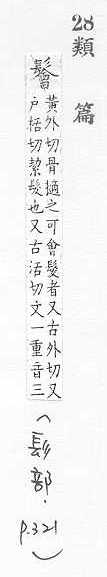 28
類篇
鬠
黃外切骨擿之可會髮者又古外切又
戶栝切絜髮也又古活切文一重音三
(髟部.
p.321)